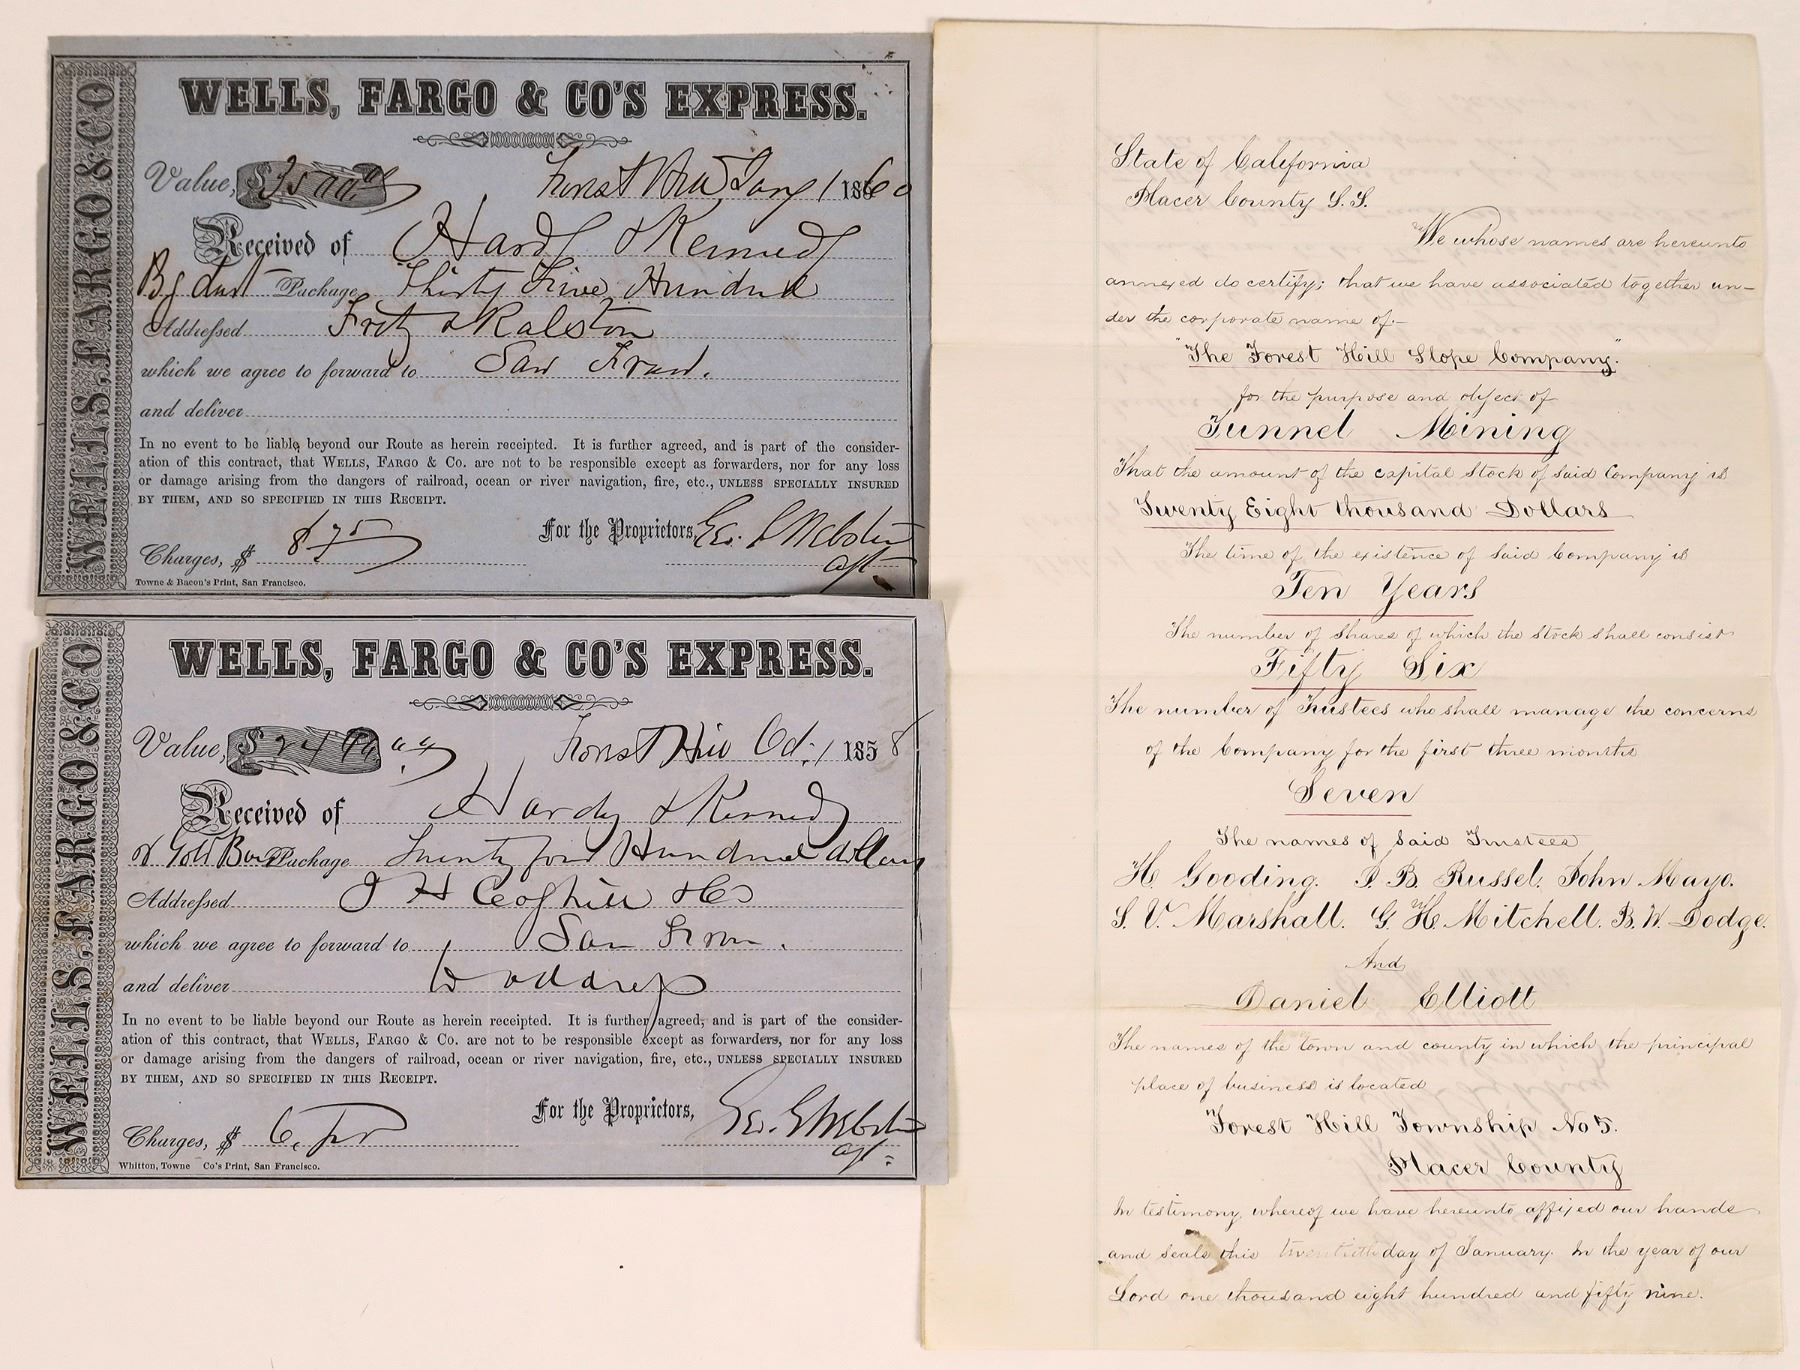 WELLS, FARGO & CO
WELLS, FARGO & CO'S EXPRESS.
Value, $3500.00 Forest Hill Jany 1 1860
Received of Hardy & Kennedy
Bg dust Package Thirty Five Hundred
Addressed Fretz & Ralston
which we agree to forward to San Fran.
and deliver
In no event to be liable beyond our Route as herein receipted. It is further agreed, and is part of the consider-
ation of this contract, that WELLS, FARGO & CO. are not to be responsible except as forwarders, nor for any loss
or damage arising from the dangers of railroad, ocean or river navigation, fire, etc., UNLESS SPECIALLY INSURED
BY THEM, AND SO SPECIFIED IN THIS RECEIPT.
For the Proprietors, Geo. Webster
Charges, $ 8 75 agt
Towne & Bacon's Print, San Francisco.
WELLS, FARGO & CO
WELLS, FARGO & CO'S EXPRESS.
Value, $ Forest Hill Oct. 1 1858
Received of Hardy & Kennedy
of Gold Bar Package Twenty four Hundred dollars
Addressed J H Coghill & Co
which we agree to forward to San Fran.
and deliver to address
In no event to be liable beyond our Route as herein receipted. It is further agreed, and is part of the consider-
ation of this contract, that WELLS, FARGO & CO. are not to be responsible except as forwarders, nor for any loss
or damage arising from the dangers of railroad, ocean or river navigation, fire, etc., UNLESS SPECIALLY INSURED
BY THEM, AND SO SPECIFIED IN THIS RECEIPT.
For the Proprietors, Geo. Webster
Charges, $ 6. agt
Whitton, Towne Co's Print, San Francisco.
State of California
Placer County S.S.
"We whose names are hereunto
annexed do certify; that we have associated together un-
der the corporate name of:-
"The Forest Hill Slope Company."
for the purpose and object of
Tunnel Mining
That the amount of the capital stock of said Company is
Twenty Eight thousand Dollars
The time of the existence of said Company is
Ten Years
The number of shares of which the stock shall consist
Fifty Six
The number of Trustees who shall manage the concerns
of the Company for the first three months
Seven
The names of said Trustees
H. Gooding. J. B. Russel. John Mayo.
S. V. Marshall. G. H. Mitchell. B. W. Dodge.
And
Daniel Elliott
The names of the town and county in which the principal
place of business is located
Forest Hill Township No 5.
Placer County
In testimony whereof we have hereunto affixed our hands
and seals this twentieth day of January. In the year of our
Lord one thousand eight hundred and fifty nine.